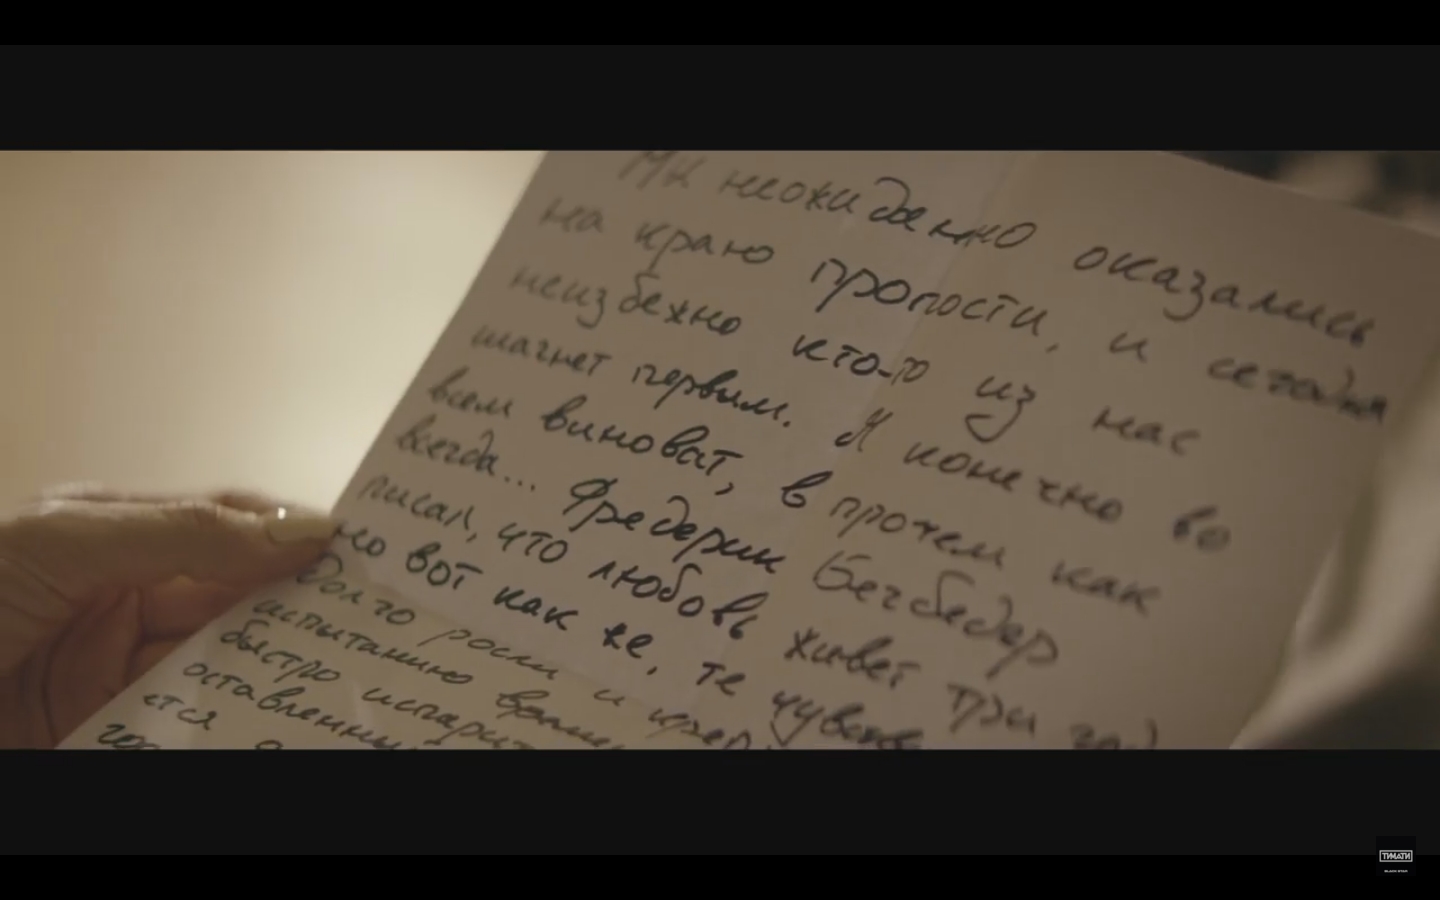 Мы неожиданно оказались
на краю пропости, и сегодня
неизбежно кто-то из нас
шагнет первым. Я конечно во
всем виноват, в прочем как
всегда... Фредерик Бегбедер
писал, что любовь живет три год
но вот как же, те чувств
долго росли и креп
испытанию време
быстро испарит
оставленны
ется
ТИМАТИ
BLACK STAR